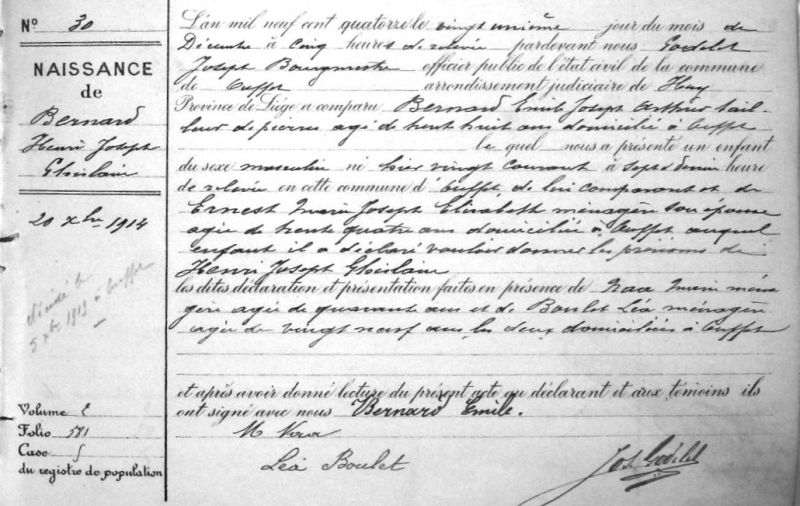 N° 30
NAISSANCE
de
Bernard
Henri Joseph
Ghislain
20 xbre 1914
décédé le
5 xbre 1919 à Ouffet
Volume E
Folio 571
Case 5
du registre de population
L'an mil neuf cent quatorze le vingt unième jour du mois de
Décembre à cinq heures de relevée pardevant nous Godelet
Joseph Bourgmestre officier public de l'état civil de la commune
de Ouffet arrondissement judiciaire de Huy
Province de Liège a comparu Bernard Emile Joseph Arthur tail-
leur de pierres agé de trente huit ans domicilié à Ouffet
le quel nous a présenté un enfant
du sexe masculin né hier vingt courant à sept & demie heure
de relevée en cette commune d'Ouffet, de lui comparant et de
Ernest Marie Joseph Elisabeth ménagère son épouse
agée de trente quatre ans domiciliée à Ouffet auquel
enfant il a déclaré vouloir donner les prénoms de
Henri Joseph Ghislain
les dites déclaration et présentation faites en présence de Naa Marie ména
gère agée de quarante ans et de Boulet Léa ménagère
agée de vingt neuf ans, les deux domiciliées à Ouffet
et après avoir donné lecture du présent acte au déclarant et aux témoins ils
ont signé avec nous Bernard Emile.
M
Léa Boulet
Jos. Godelet